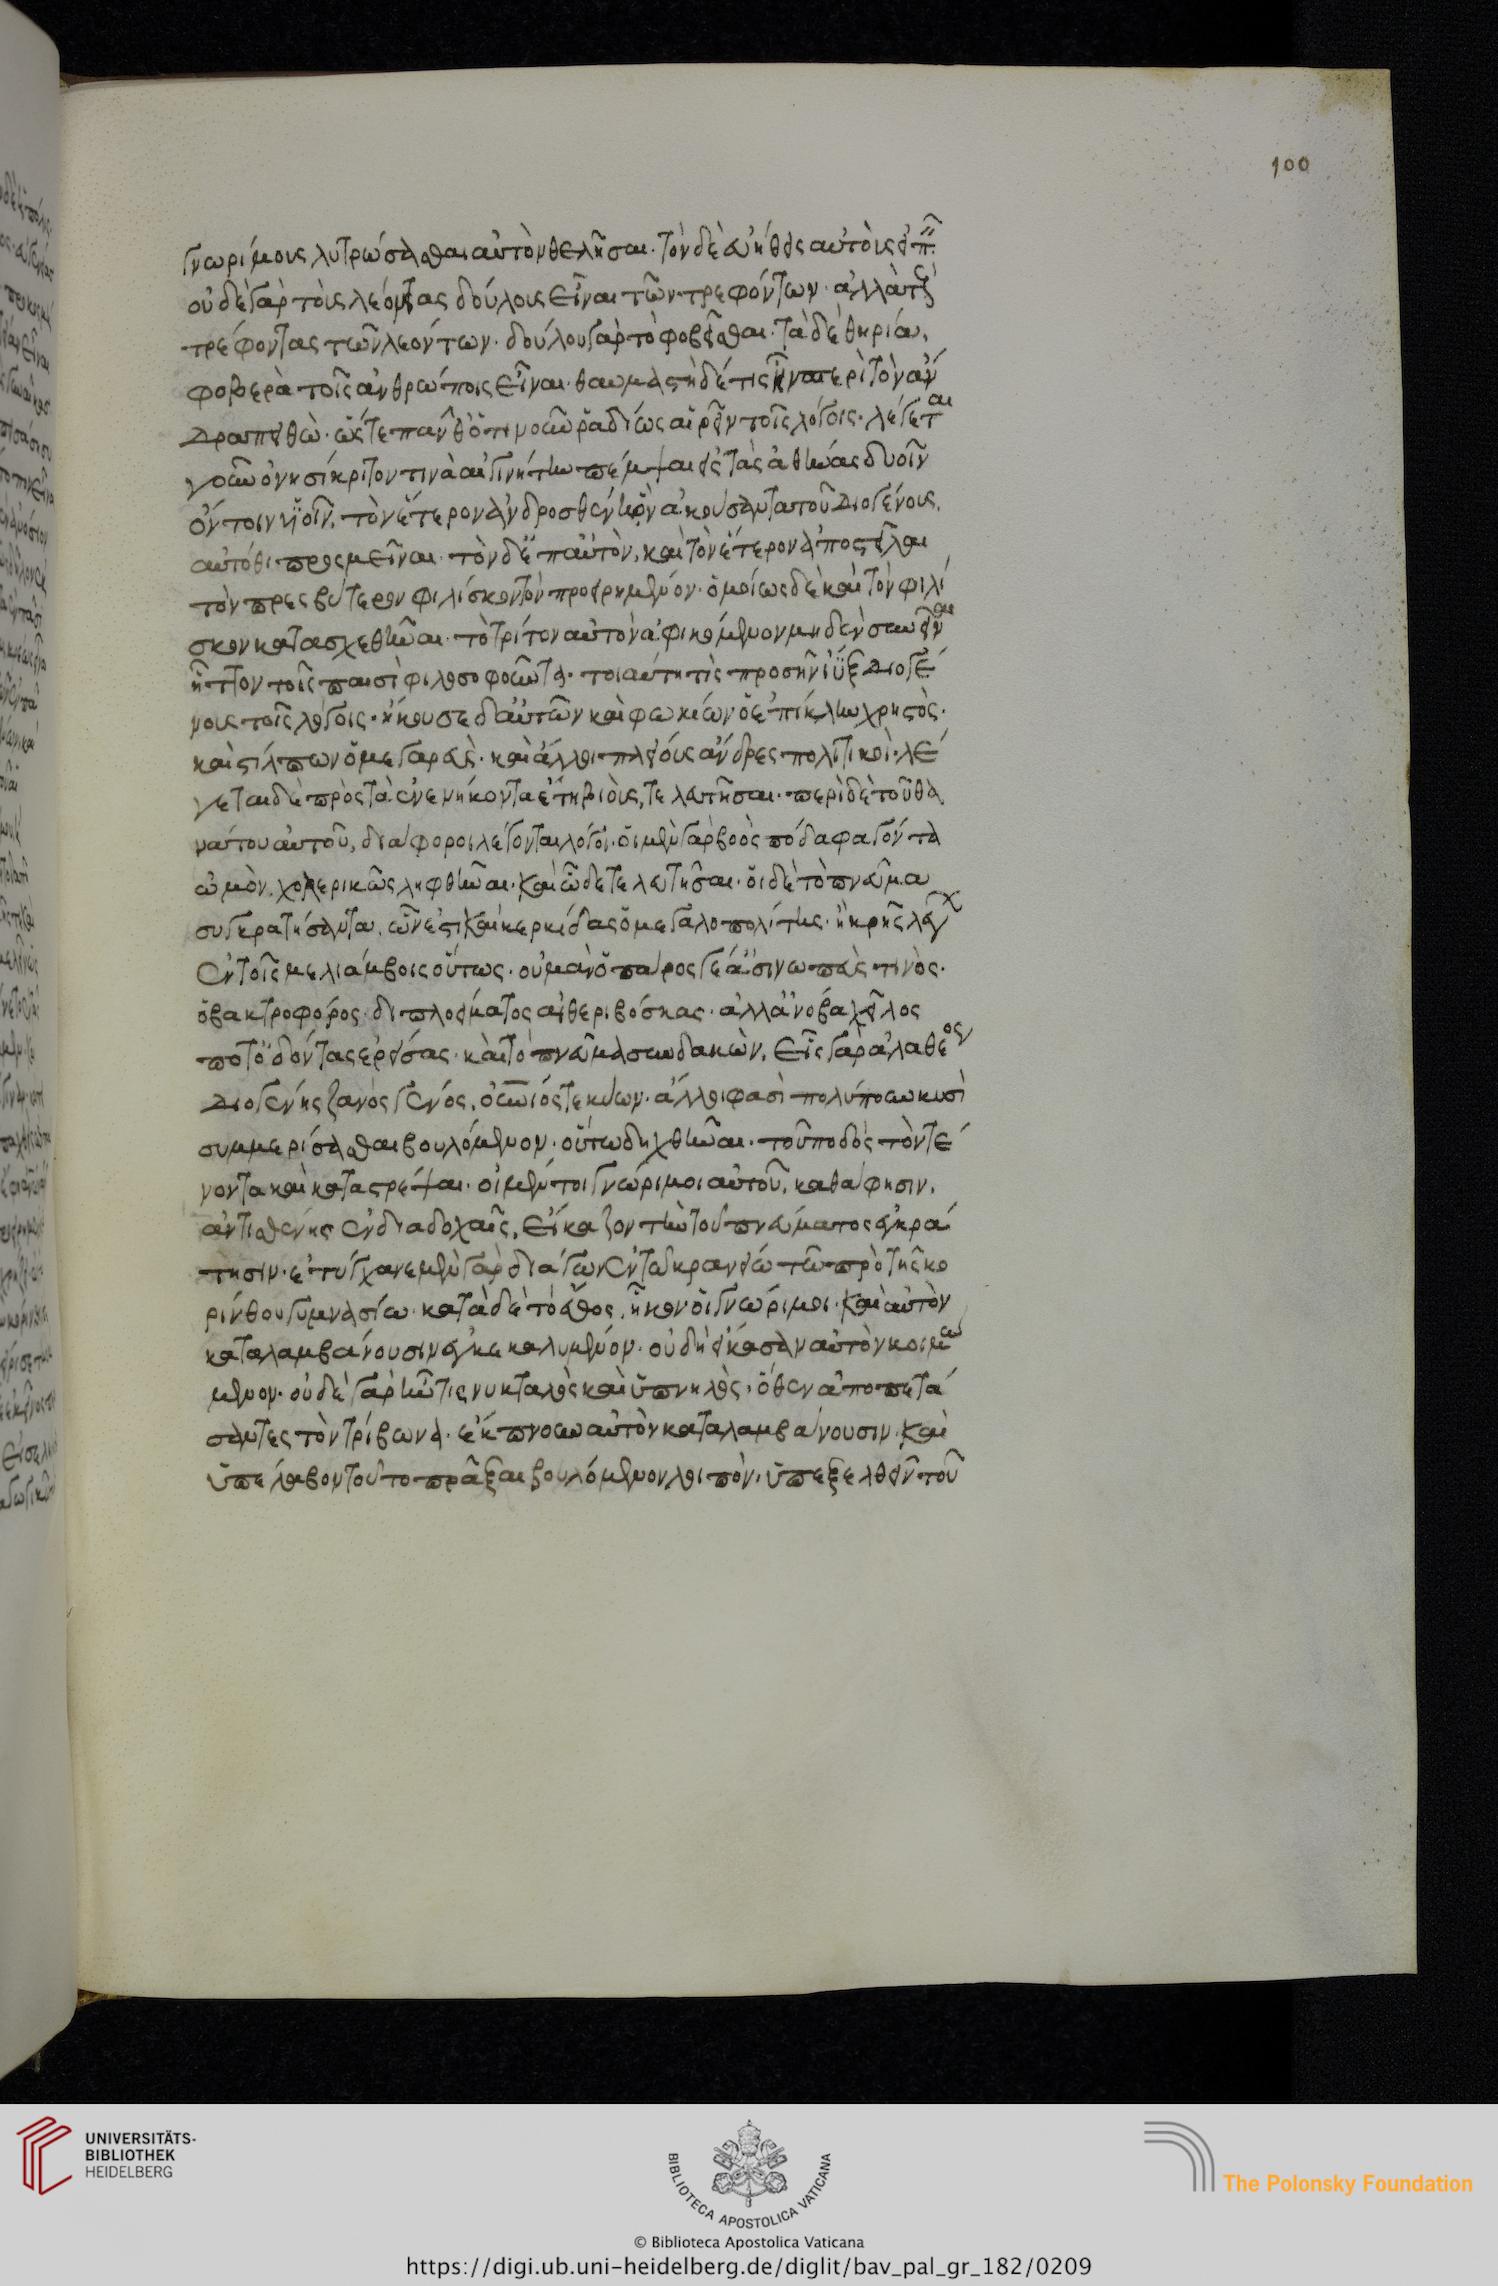 100
γνωρίμους λυτρώσασθαι αὐτὸν θελῆσαι· τὸν δὲ εὐήθεις αὐτοὺς εἰπεῖν·
οὐδὲ γὰρ τοὺς λέοντας δούλους εἶναι τῶν τρεφόντων· ἀλλὰ τοὺς
τρέφοντας τῶν λεόντων· δούλου γὰρ τὸ φοβεῖσθαι· τὰ δὲ θηρία,
φοβερὰ τοῖς ἀνθρώποις εἶναι· θαυμαστὴ δέ τις ἦν περὶ τὸν ἄν
δρα πειθὼ· ὥστε πάνθ' ὁτινοοῦν ῥαδίως αἱρεῖν τοῖς λόγοις· λέγεται
γοῦν ὀνησίκριτον τινὰ αἰγινήτην πέμψαι εἰς τὰς ἀθήνας δυοῖν
ὄντοιν ὑϊοῖν, τὸν ἕτερον ἀνδροσθένην ὃν ἀκούσαντα τοῦ Διογένους,
αὐτόθι προσμεῖναι· τὸν δ' ἐπ' αὐτὸν, καὶ τὸν ἕτερον ἀποστεῖλαι
τὸν πρεσβύτερον φιλίσκον τὸν προειρημένον· ὁμοίως δὲ καὶ τὸν φιλί
σκον κατασχεθῆναι· τὸ τρίτον αὐτὸν ἀφικόμενον μηδὲν συνεῖναι
ἧττον τοῖς παισὶ φιλοσοφοῦντα· τοιαύτη τὶς προσῆν ἴϋγξ Διογέ
νους τοῖς λόγοις· ἤκουσε δ' αὐτῶν καὶ φωκίων ὁ ἐπίκλην χρηστὸς·
καὶ στίλπων ὁ μεγαρεὺς· καὶ ἄλλοι πλείους ἄνδρες πολιτικοὶ· λέ
γεται δὲ πρὸς τὰ ἐνενήκοντα ἔτη βιοὺς, τελευτῆσαι· περὶ δὲ τοῦ θα
νάτου αὐτοῦ, διάφοροι λέγονται λόγοι· οἱ μὲν γὰρ βοὸς πόδα φαγόντα
ὠμὸν, χολερικῶς ληφθῆναι· καὶ ὧδε τελευτῆσαι· οἱ δὲ τὸ πνεῦμα
συγκρατήσαντα, ὧν ἐστι καὶ κερκίδας ὁ μεγαλοπολίτης· ἢ κρῆς λέγ
ἐν τοῖς μελιάμβοις οὕτως· οὐ μὰν ὁ πάρος γε ἀ σινωπεὺς τινὸς·
ὁ βακτροφόρος· διπλοείματος αἰθεριβόσκας· ἀλλ' ἀνόβα χεῖλος
ποτ' ὀδόντας ἐρείσας· καὶ τὸ πνεῦμα συνδακὼν, εἷς γὰρ ἀλαθέος
Διογένης ζανὸς γένος, οὐράνιός τε κύων· ἄλλοι φασὶ πολύπουν κυσὶ
συμμερίσασθαι βουλόμενον· οὕτω δηχθῆναι· τοῦ ποδὸς τὸν τέ
νοντα καὶ καταστρέψαι· οἱ μέντοι γνώριμοι αὐτοῦ, καθά φησιν,
ἀντισθένης ἐν διαδοχαῖς, εἴκαζον τὴν τοῦ πνεύματος συγκρά
τησιν· ἐτύγχανε μὲν γὰρ διάγων ἐν τῶ κρανείω τῶ πρὸ τῆς κο
ρίνθου γυμνασίω· κατὰ δὲ τὸ ἔθος, ἧκον οἱ γνώριμοι· καὶ αὐτὸν
καταλαμβάνουσιν συγκεκαλυμμένον· οὐδ' ἤκασαν αὐτὸν κοιμώ
μενον· οὐδὲ γὰρ ἦν τις νυκταλὸς καὶ ὑπνηλὸς· ὅθεν ἀποπετά
σαντες τὸν τρίβωνα· ἔκπνουν αὐτὸν καταλαμβάνουσιν· καὶ
ὑπέλαβον τοῦτο πρᾶξαι βουλόμενον λοιπὸν, ὑπεξελθεῖν τοῦ
UNIVERSITÄTS-
BIBLIOTHEK
HEIDELBERG
BIBLIOTECA APOSTOLICA VATICANA
The Polonsky Foundation
© Biblioteca Apostolica Vaticana
https://digi.ub.uni-heidelberg.de/diglit/bav_pal_gr_182/0209